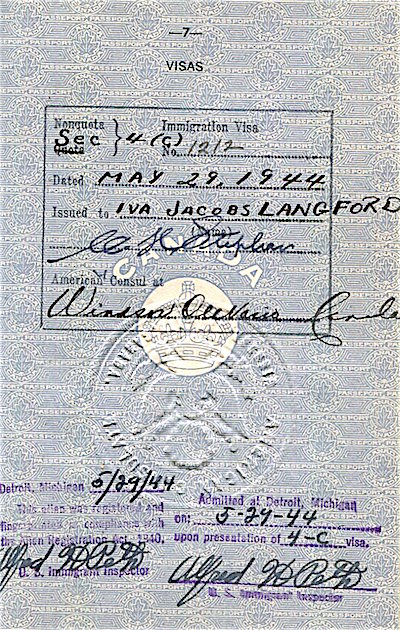 —7—
VISAS
Nonquota } Immigration Visa
Sec 4 (c)
Quota No. 1212
Dated MAY 29, 1944
Issued to IVA JACOBS LANGFORD
(Name)
CANADA
American Consul at
Windsor Ontario Canada
Detroit, Michigan 5/29/44
This alien was registered and
fingerprinted in compliance with
the Alien Registration Act, 1940.
U. S. Immigrant Inspector
Admitted at Detroit, Michigan
on: 5-29-44
upon presentation of 4-C visa.
U. S. Immigrant Inspector